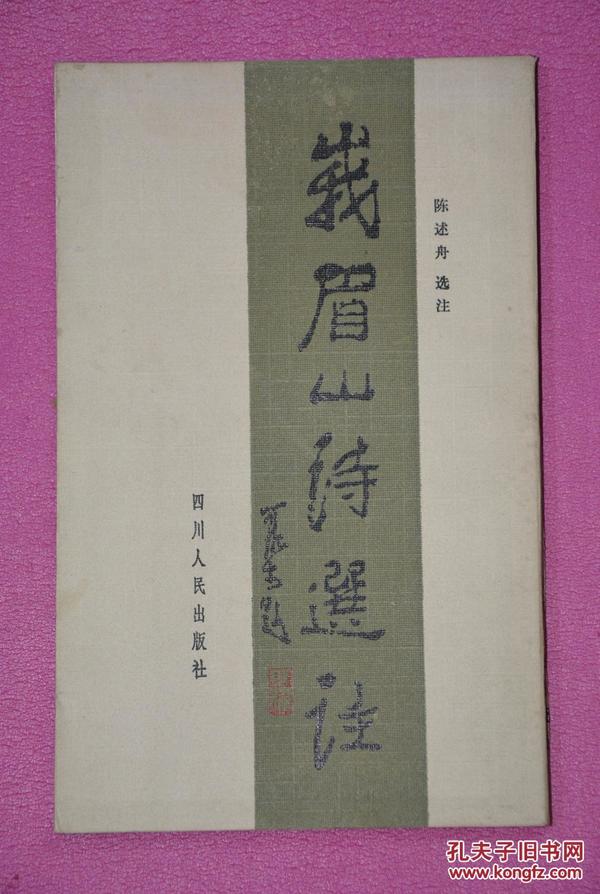 陈述舟 选注
峩眉山诗選注
四川人民出版社
孔夫子旧书网
www.kongfz.com